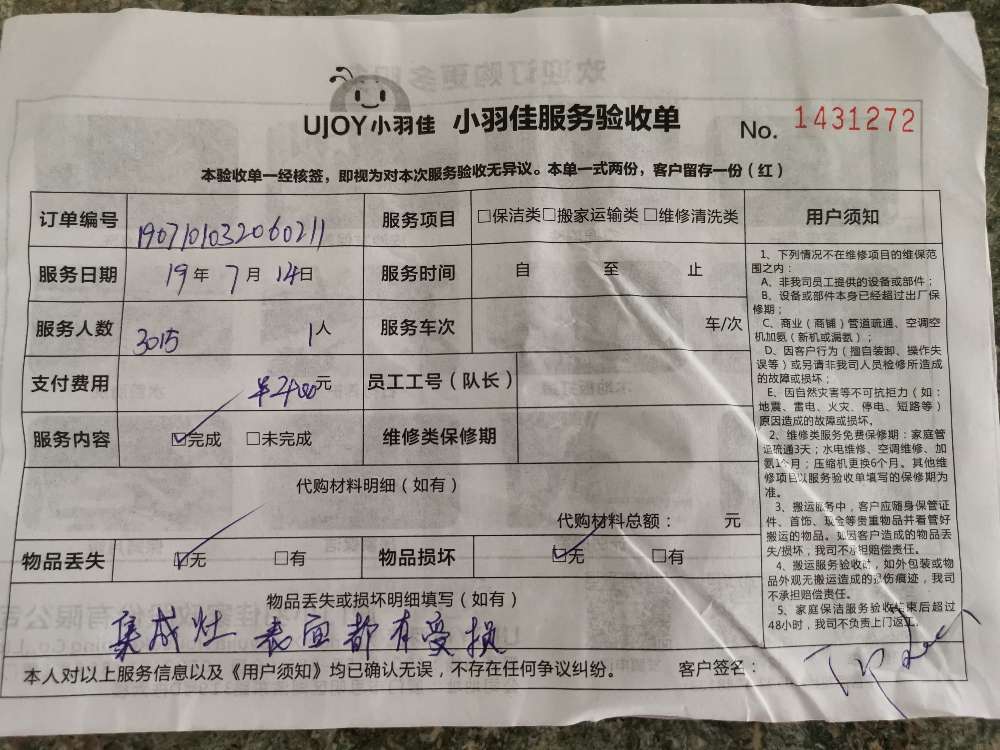 UJOY小羽佳 小羽佳服务验收单 No. 1431272
本验收单一经核签，即视为对本次服务验收无异议。本单一式两份，客户留存一份（红）
订单编号 1907101032060211 服务项目 □保洁类□搬家运输类□维修清洗类
服务日期 19年 7月 14日 服务时间 自 至 止
服务人数 3015 1人 服务车次 车/次
支付费用 元 员工工号（队长）
服务内容 ☑完成 □未完成 维修类保修期
代购材料明细（如有）
代购材料总额： 元
物品丢失 ☑无 □有 物品损坏 ☑无 □有
物品丢失或损坏明细填写（如有）
集成灶 表面都有受损
本人对以上服务信息以及《用户须知》均已确认无误，不存在任何争议纠纷。 客户签名：
用户须知
1、下列情况不在维修项目的维保范
围之内：
A、非我司员工提供的设备或部件；
B、设备或部件本身已经超过出厂保
修期；
C、商业（商铺）管道疏通、空调空
机加氨（新机或漏氨）；
D、因客户行为（擅自装卸、操作失
误等）或另请非我司人员检修所造成
的故障或损坏；
E、因自然灾害等不可抗拒力（如：
地震、雷电、火灾、停电、短路等）
原因造成的故障或损坏。
2、维修类服务免费保修期：家庭管
道疏通3天；水电维修、空调维修、加
氨1个月；压缩机更换6个月。其他维
修项目以服务验收单填写的保修期为
准。
3、搬运服务中，客户应随身保管证
件、首饰、现金等贵重物品并看管好
搬运的物品。如因客户造成的物品丢
失/损坏，我司不承担赔偿责任。
4、搬运服务验收时，如外包装或物
品外观无搬运造成的损伤痕迹，我司
不承担赔偿责任。
5、家庭保洁服务验收结束后超过
48小时，我司不负责上门返工。